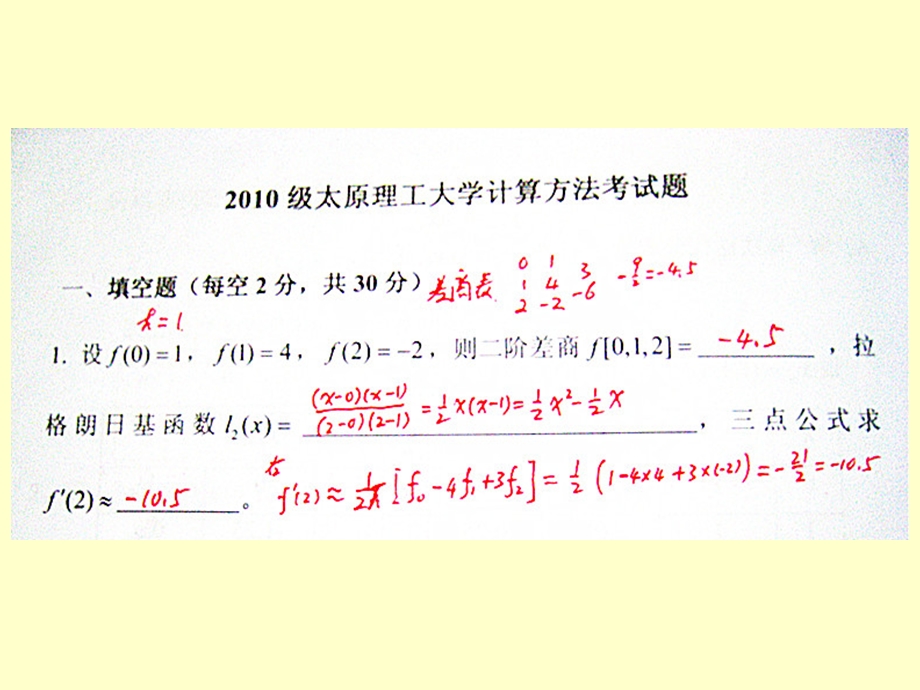 2010 级太原理工大学计算方法考试题
一、填空题（每空 2 分，共 30 分） 差商表 0 1 3 -9/2=-4.5
1 4 -6
2 -2
h=1
1. 设 f(0)=1， f(1)=4， f(2)=-2，则二阶差商 f[0,1,2]= -4.5 ，拉
格朗日基函数 l₂(x)= (x-0)(x-1)/(2-0)(2-1) = 1/2 x(x-1) = 1/2 x² - 1/2 x ，三点公式求
f′(2)≈ -10.5 。 f′(2)≈ 1/2h [f₀-4f₁+3f₂] = 1/2 (1-4×4+3×(-2)) = -21/2 = -10.5